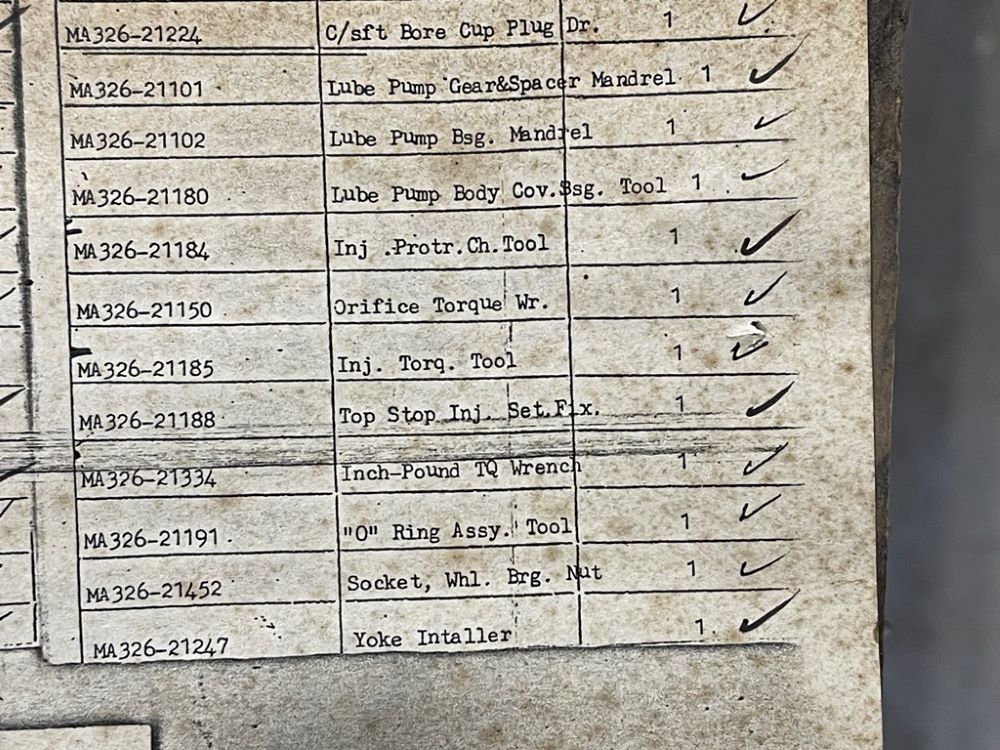 MA326-21224 C/sft Bore Cup Plug Dr. 1
MA326-21101 Lube Pump Gear&Spacer Mandrel 1
MA326-21102 Lube Pump Bsg. Mandrel 1
MA326-21180 Lube Pump Body Cov.Bsg. Tool 1
MA326-21184 Inj .Protr.Ch.Tool 1
MA326-21150 Orifice Torque Wr. 1
MA326-21185 Inj. Torq. Tool 1
MA326-21188 Top Stop Inj. Set.Fix. 1
MA326-21334 Inch-Pound TQ Wrench 1
MA326-21191 "O" Ring Assy. Tool 1
MA326-21452 Socket, Whl. Brg. Nut 1
MA326-21247 Yoke Intaller 1